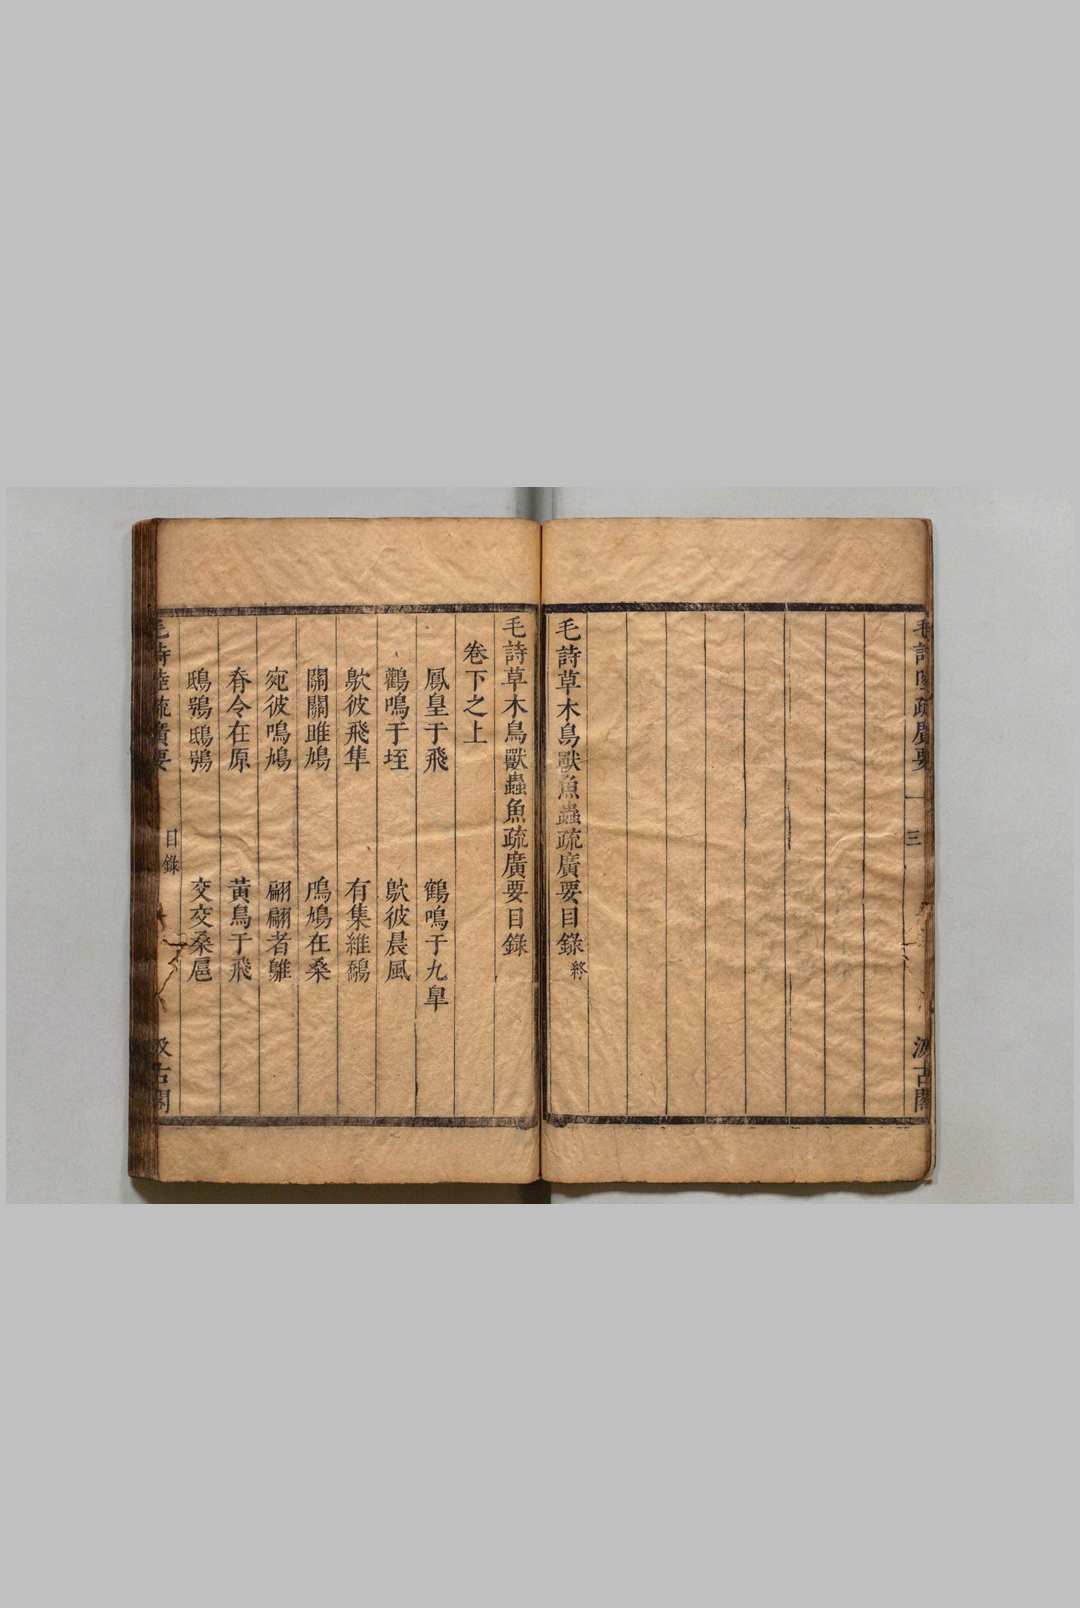 毛詩陸疏廣要
三
汲古閣
毛詩草木鳥獸魚蟲疏廣要目錄終
毛詩草木鳥獸蟲魚疏廣要目錄
卷下之上
鳳皇于飛
鶴鳴于九皐
鸛鳴于垤
鴥彼晨風
鴥彼飛隼
有集維鷮
關關雎鳩
鳲鳩在桑
宛彼鳴鳩
翩翩者鵻
脊令在原
黃鳥于飛
鴟鴞鴟鴞
交交桑扈
毛詩陸疏廣要
目錄
汲古閣